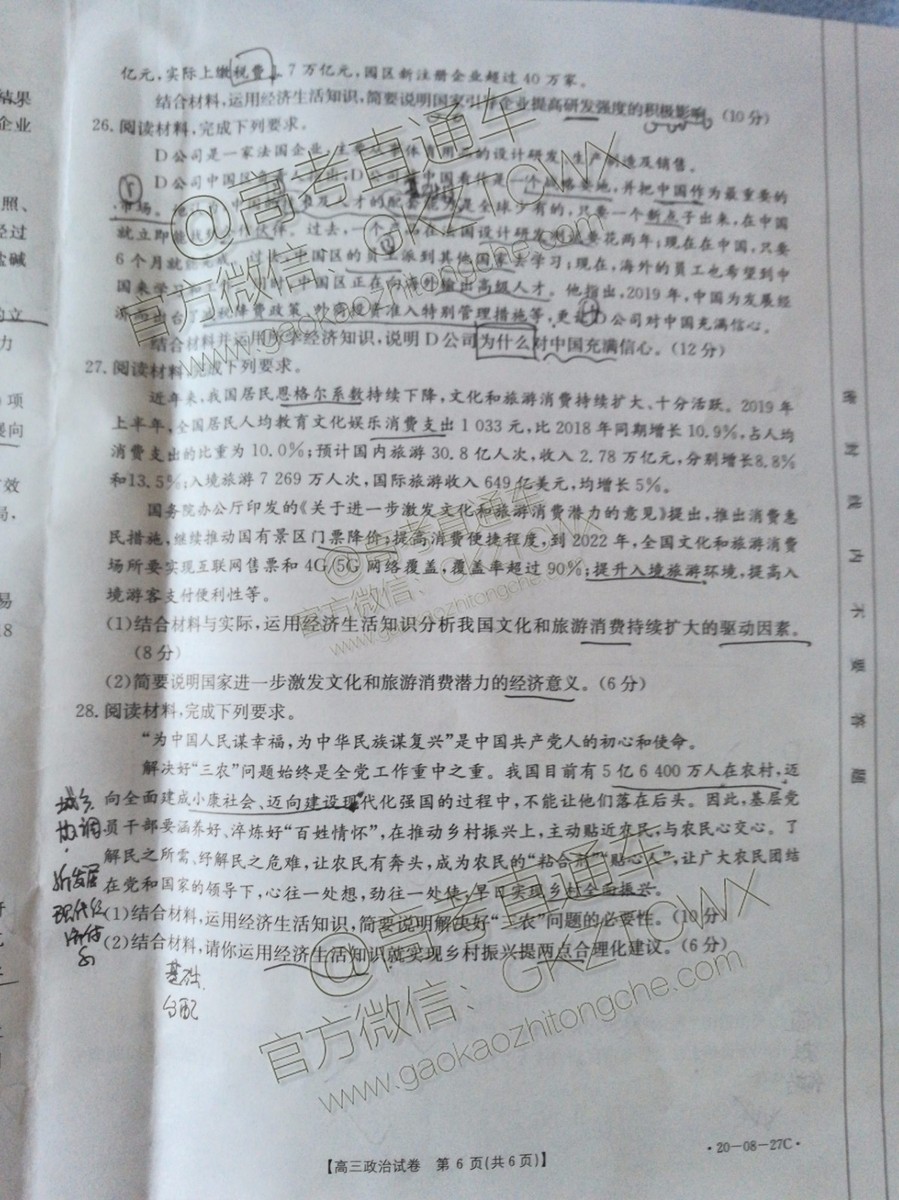 亿元,实际上缴税费 7万亿元,园区新注册企业超过40万家。
结合材料,运用经济生活知识,简要说明国家引导企业提高研发强度的积极影响。(10分)
26.阅读材料,完成下列要求。
D公司是一家法国企业,主要从事体育用品的设计研发、生产制造及销售。
D公司中国区负责人指出,D公司将中国看作是一个战略要地,并把中国作为最重要的
市场。中国 及人才的配套 是全球少有的,只要一个新点子出来,在中国
就立即能找到合作伙伴。过去,一个产品在法国设计研发测试要花两年;现在在中国,只要
6个月就能完成。过去,中国区的员工派到其他国家去学习;现在,海外的员工也希望到中
国来学习和工作,同时,中国区正在向海外输出高级人才。他指出,2019年,中国为发展经
济而出台了减税降费政策、外商投资准入特别管理措施等,更让D公司对中国充满信心。
结合材料并运用所学经济知识,说明D公司为什么对中国充满信心。(12分)
27.阅读材料,完成下列要求。
近年来,我国居民恩格尔系数持续下降,文化和旅游消费持续扩大、十分活跃。2019年
上半年,全国居民人均教育文化娱乐消费支出1 033元,比2018年同期增长10.9%,占人均
消费支出的比重为10.0%;预计国内旅游30.8亿人次,收入2.78万亿元,分别增长8.8%
和13.5%;入境旅游7 269万人次,国际旅游收入649亿美元,均增长5%。
国务院办公厅印发的《关于进一步激发文化和旅游消费潜力的意见》提出,推出消费惠
民措施,继续推动国有景区门票降价;提高消费便捷程度,到2022年,全国文化和旅游消费
场所要实现互联网售票和4G/5G网络覆盖,覆盖率超过90%;提升入境旅游环境,提高入
境游客支付便利性等。
(1)结合材料与实际,运用经济生活知识分析我国文化和旅游消费持续扩大的驱动因素。
(8分)
(2)简要说明国家进一步激发文化和旅游消费潜力的经济意义。(6分)
28.阅读材料,完成下列要求。
“为中国人民谋幸福,为中华民族谋复兴”是中国共产党人的初心和使命。
解决好“三农”问题始终是全党工作重中之重。我国目前有5亿6 400万人在农村,迈
向全面建成小康社会、迈向建设现代化强国的过程中,不能让他们落在后头。因此,基层党
员干部要涵养好、淬炼好“百姓情怀”,在推动乡村振兴上,主动贴近农民,与农民心交心。了
解民之所需、纾解民之危难,让农民有奔头,成为农民的“粘合剂”“贴心人”,让广大农民团结
在党和国家的领导下,心往一处想,劲往一处使,早日实现乡村全面振兴。
(1)结合材料,运用经济生活知识,简要说明解决好“三农”问题的必要性。(10分)
(2)结合材料,请你运用经济生活知识就实现乡村振兴提两点合理化建议。(6分)
城乡
协调
新发展
现代化
基础
分配
密封线内不要答题
@高考直通车
官方微信:GKZTCWX
www.gaokaozhitongche.com
@高考直通车
官方微信:GKZTCWX
www.gaokaozhitongche.com
@高考直通车
官方微信:GKZTCWX
www.gaokaozhitongche.com
【高三政治试卷 第6页(共6页)】
·20-08-27C·